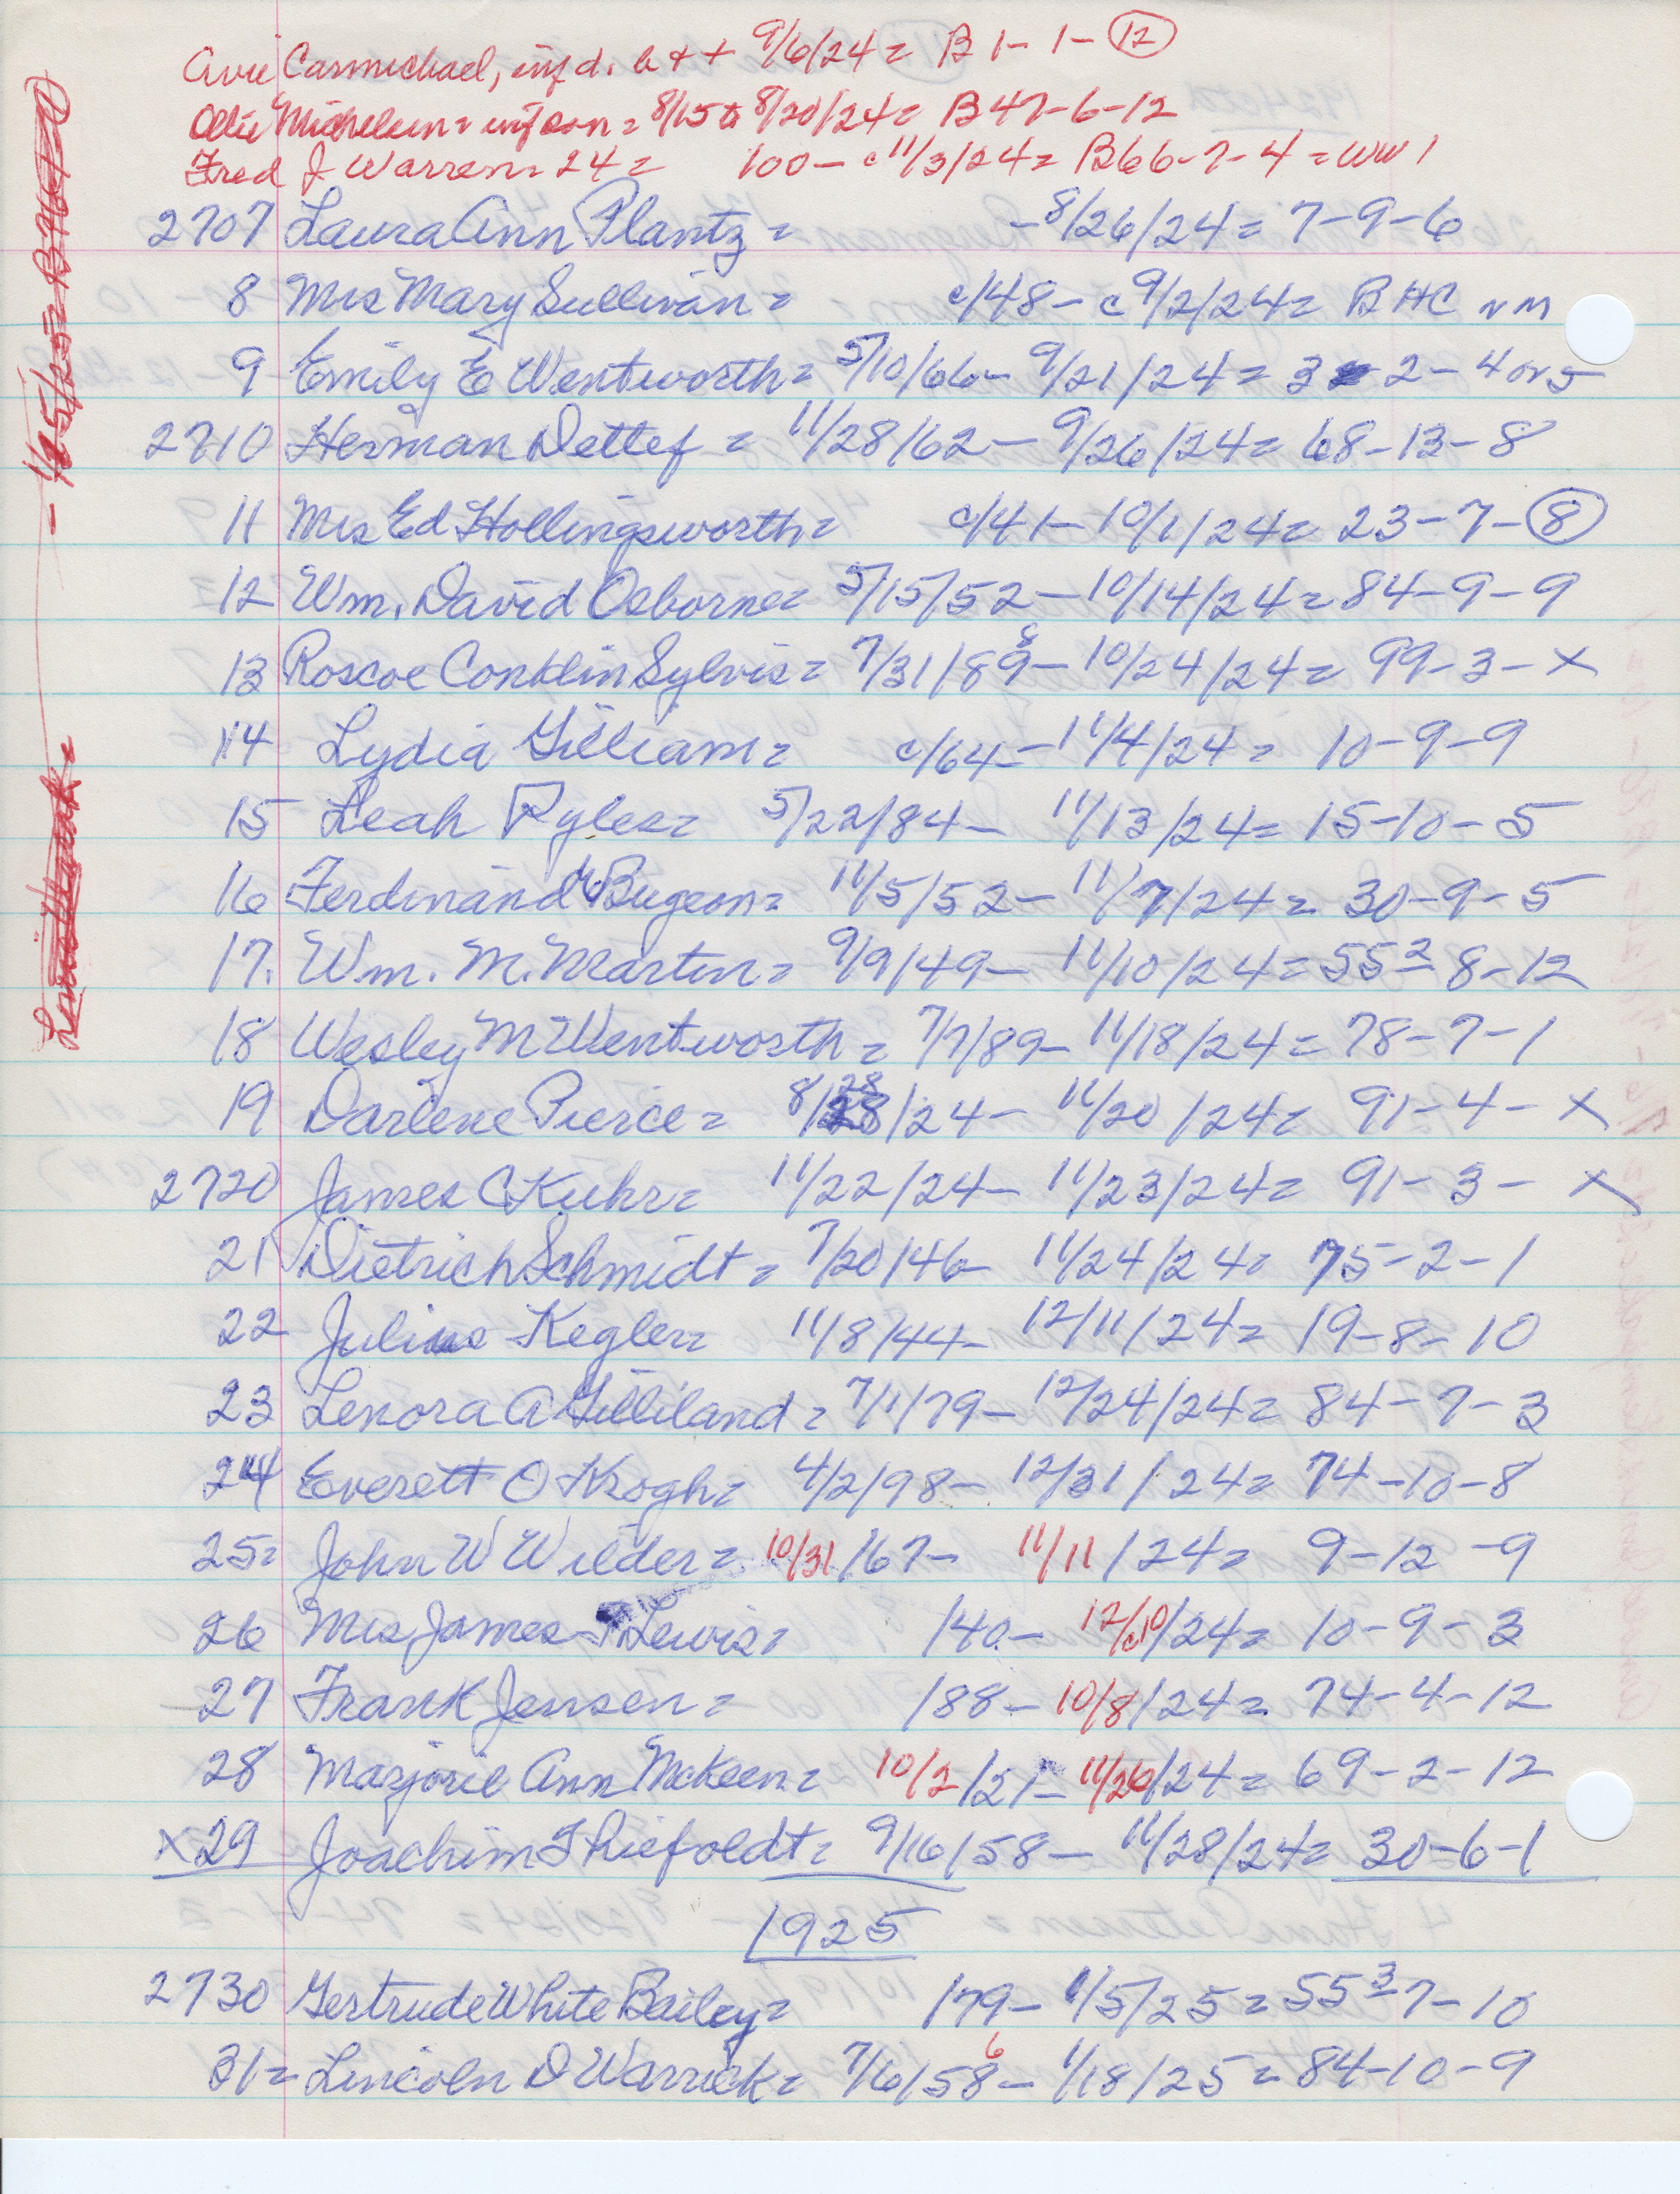 Avie Carmichael, inf d. b + + 9/6/24 = B 1 - 1 - 12
Ollie Michelsen = inf son = 8/15 to 8/20/24 = B 47-6-12
Fred J Warren = 24 = 100 - c 11/3/24 = B66-7-4 = WW 1
2707 Laura Ann Plantz = - 8/26/24 = 7-9-6
8 Mrs Mary Sullivan = c/48 - c 9/2/24 = B HC NM
9 Emily E Wentworth = 5/10/66 - 9/21/24 = 3 - 2 - 4 or 5
2710 Herman Dettef = 11/28/62 - 9/26/24 = 68-13-8
11 Mrs Ed Hollingsworth = c/41 - 10/1/24 = 23-7-8
12 Wm. David Osborne = 5/15/52 - 10/14/24 = 84-9-9
13 Roscoe Conklin Sylvis = 7/31/89 8 - 10/24/24 = 99-3-X
14 Lydia Gilliam = c/64 - 11/4/24 = 10-9-9
15 Leah Pyles = 5/22/84 - 11/13/24 = 15-10-5
16 Ferdinand Bugeon = 11/5/52 - 11/7/24 = 30-9-5
17. Wm. M. Martin = 9/9/49 - 11/10/24 = 55 2 - 8-12
18 Wesley M Wentworth = 7/7/89 - 11/18/24 = 78-7-1
19 Darlene Pierce = 8/28/24 - 11/20/24 = 91-4-X
2720 James C Kuhr = 11/22/24 - 11/23/24 = 91-3-X
21 Dietrich Schmidt = 7/20/46 - 11/24/24 = 75-2-1
22 Julius Kegler = 11/8/44 - 12/11/24 = 19-8-10
23 Lenora A Gilliland = 7/1/79 - 12/24/24 = 84-7-3
24 Everett O Krogh = 4/2/98 - 12/31/24 = 74-10-8
25 = John W Wilder = 10/31/67 - 11/11/24 = 9-12-9
26 Mrs James Lewis = /40 - 12/c10/24 = 10-9-3
27 Frank Jensen = /88 - 10/8/24 = 74-4-12
28 Marjorie Ann McKeen = 10/2/21 - 11/26/24 = 69-2-12
X 29 Joachim Thiefoldt = 9/16/58 - 11/28/24 = 30-6-1
1925
2730 Gertrude White Bailey = /79 - 1/5/25 = 55 3 - 7-10
31 = Lincoln D Warrick = 7/6/58 6 - 1/18/25 = 84-10-9